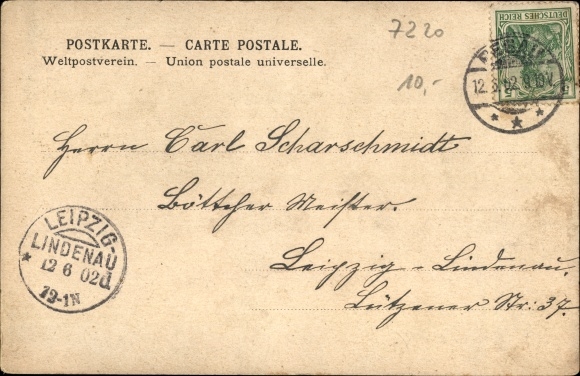 7220
10,-
DEUTSCHES REICH
5 5
PEGAU
12.6.02. 9-10V.
POSTKARTE. — CARTE POSTALE.
Weltpostverein. — Union postale universelle.
Herrn Carl Scharschmidt
Böttcher Meister.
Leipzig-Lindenau.
Lützener Str: 37.
LEIPZIG-
LINDENAU
* 12 6 02 d.
12-1N